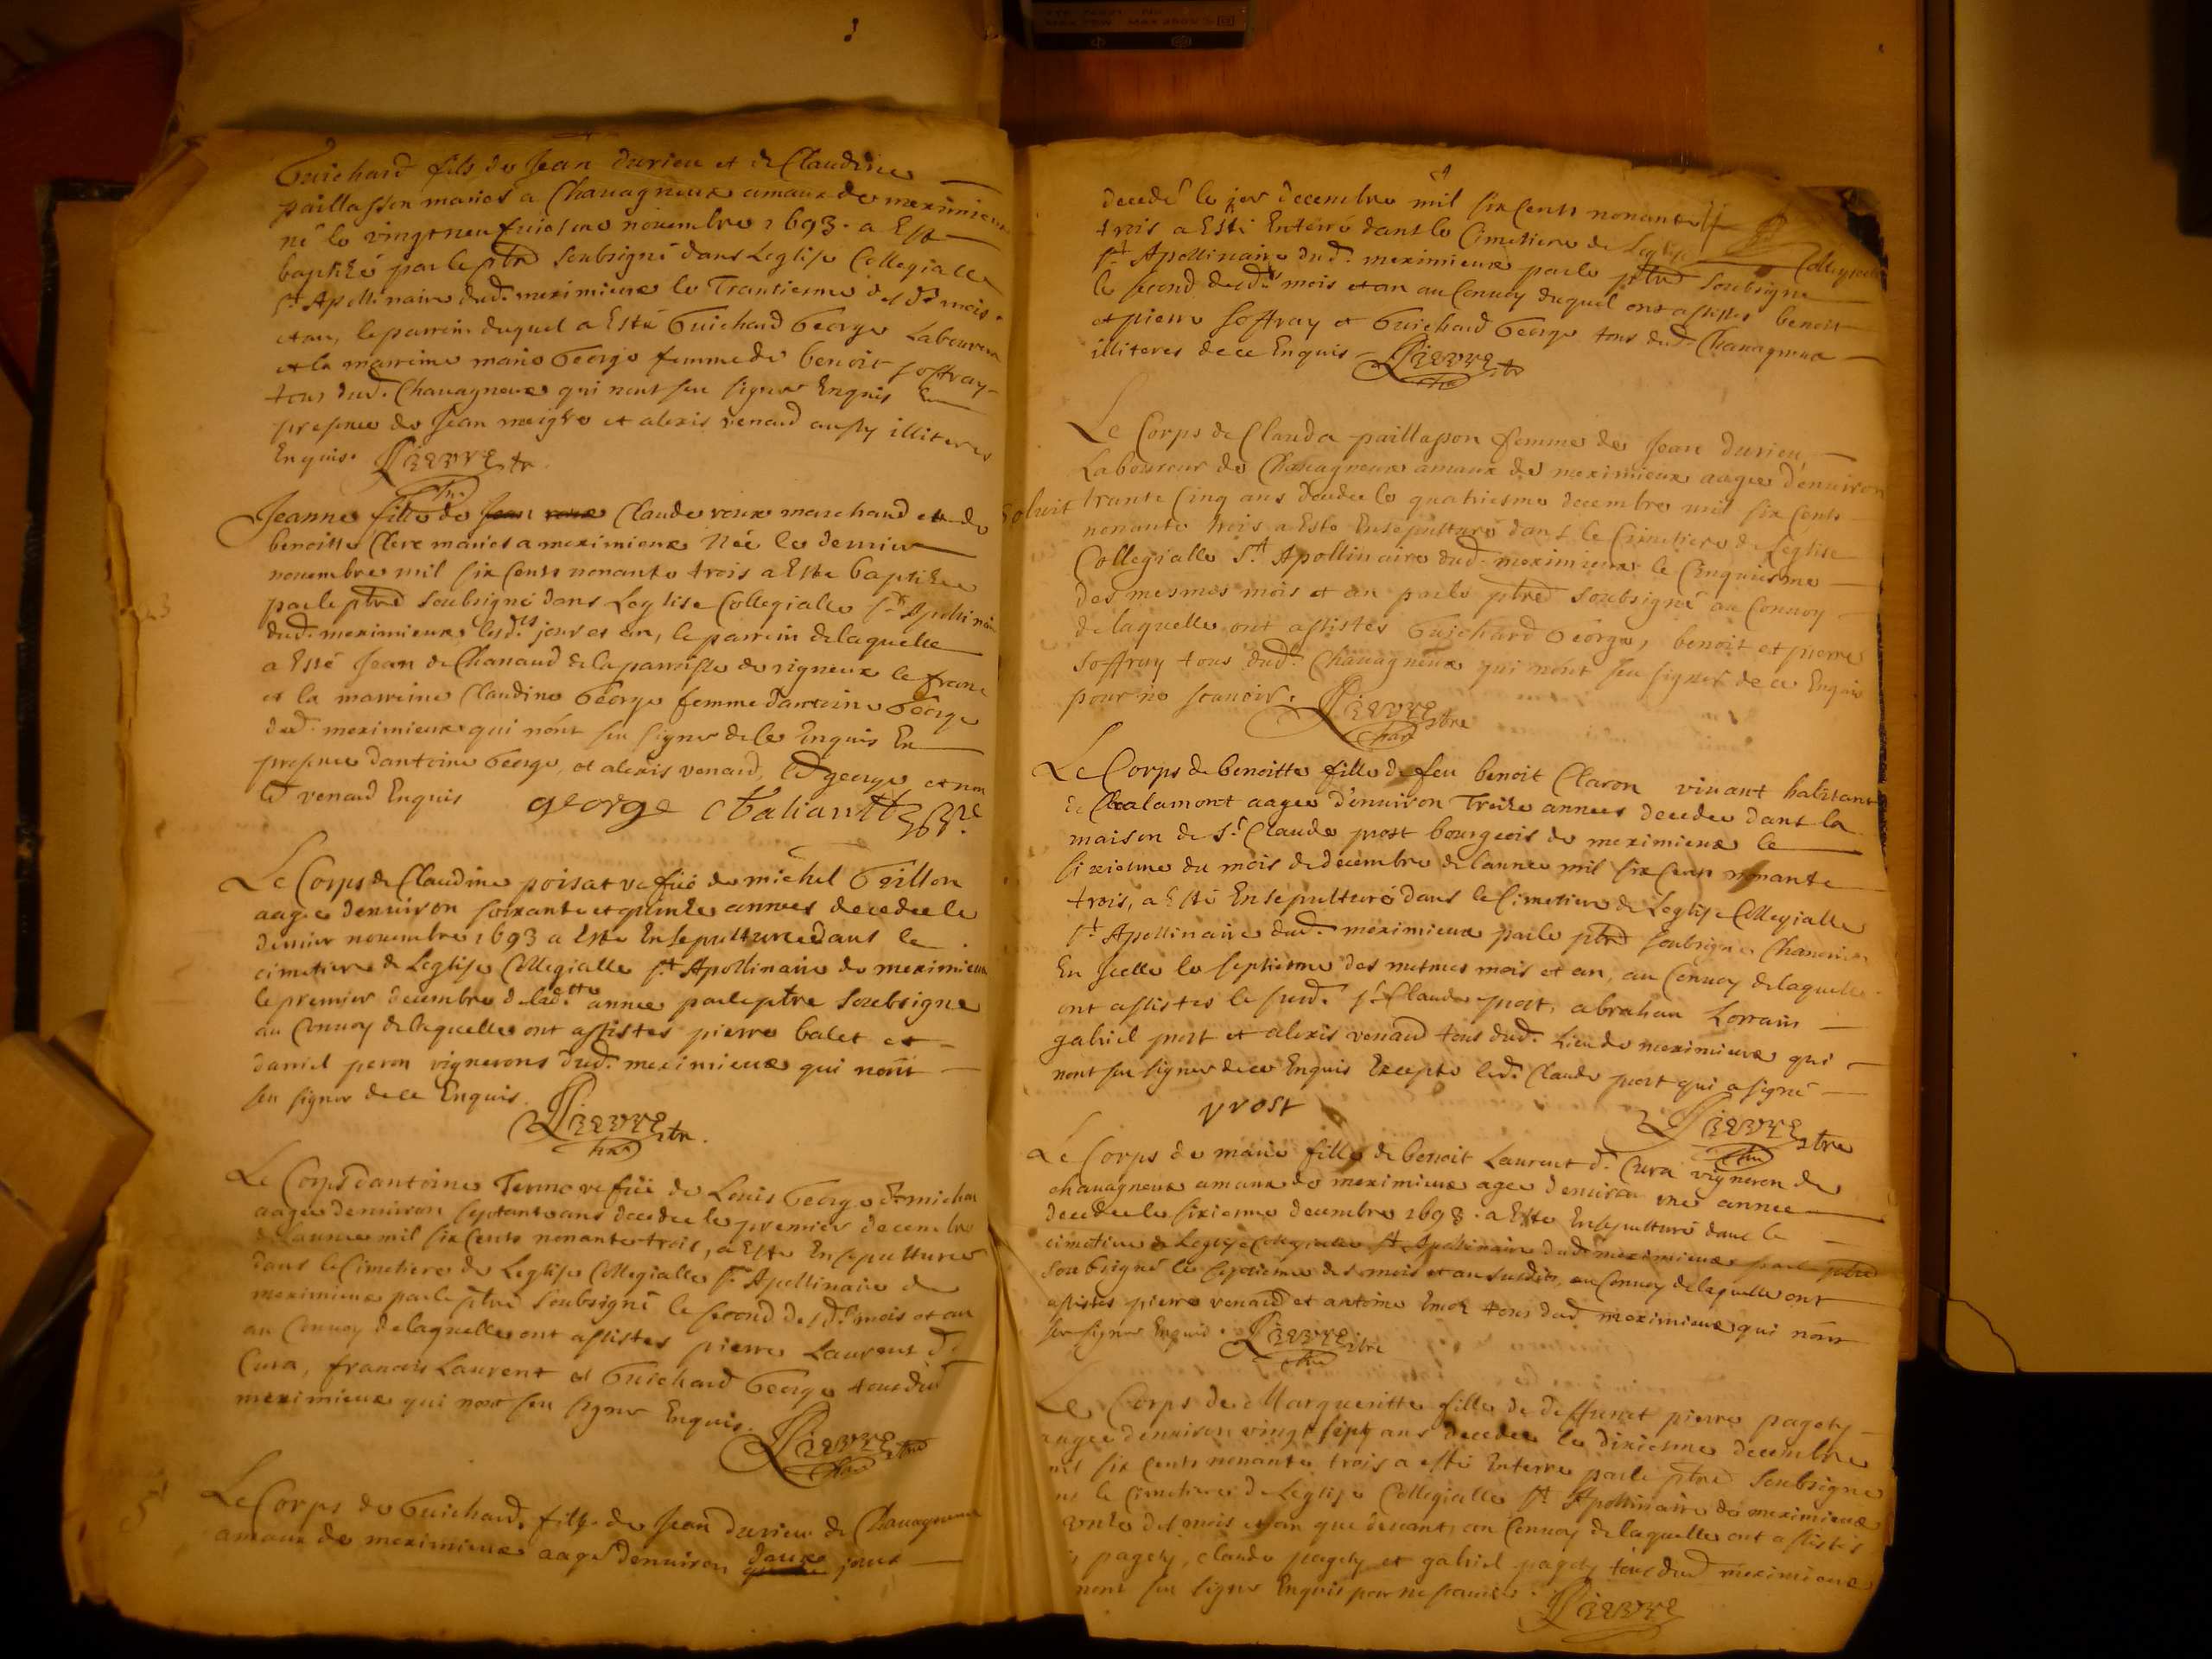 Guichard fils de Jean durieu et de Claudine
paillasson mariés a Chauagneux amaux de meximieux
né le vingtneufuiesme nouembre 1693. a Esté
baptizé par le ptre Soubsigné dans Leglise Collegialle
St Apollinaire dud. meximieux le Trantiesme desd. mois
et an, le parrein duquel a Esté Guichard George Laboureur
et la marreine marie George femme de benoit soffray
tous dud. Chauagneux qui nont sçu signer Enquis En
presence de Jean meigre et alexis venard aussy illiteres
Enquis.
Jeanne fille de Claude roux marchand et de
benoitte Clere mariés a meximieux Née le dernier
nouembre mil six Cents nonante trois a Esté baptizée
par le ptre soubsigné dans Leglise Collegialle St Apollinaire
dud. meximieux lesd. jour et an, le parrein delaquelle
a Esté Jean de Chanaud de la parroisse de rigneux le franc
et la marreine Claudine George femme dantoine George
dud. meximieux qui nont sçu signer de ce Enquis En
presence dantoine George, et alexis venard, led george et non
led venard Enquis george
Le Corps de Claudine poisat vefue de michel Grillon
aagée denuiron soixante et quinze années decedée le
dernier nouembre 1693 a Esté Ensepulturée dans le
cimetiere de Leglise Collegialle St Apollinaire de meximieux
le premier decembre de lad. année par le ptre Soubsigné
au Conuoy delaquelle ont assistes pierre balet et
daniel peron vignerons dud. meximieux qui nont
sçu signer de ce Enquis
Le Corps dantoine Terme vefue de Louis George d. michon
aagée denuiron septante ans decedée le premier decembre
de Lannée mil six Cents nonante trois, a Esté Ensepulturée
dans le Cimetiere de Leglise Collegialle St Apollinaire de
meximieux par le ptre Soubsigné le second desd. mois et an
au Conuoy delaquelle ont assistes pierre Laurent d.
Cura, francois Laurent et Guichard George tous dud
meximieux qui nont sçu signer Enquis.
Le Corps de Guichard, fils de Jean durieu de Chauagneux
amaux de meximieux aagé denuiron deux jours
decedé le jer decembre mil six Cents nonante
trois a Esté Enterré dans le Cimetiere de Leglise Collegialle
St Apollinaire dud. meximieux par le ptre Soubsigné
le second desd. mois et an au Conuoy duquel ont assistes benoit
et pierre Soffray et Guichard George tous dud. Chauagneux
illiteres de ce Enquis
Le Corps de Clauda paillasson femme de Jean durieu,
Laboureur de Chauagneux amaux de meximieux aagée denuiron
trante Cinq ans decedée le quatriesme decembre mil six Cents
nonante trois a Esté Ensepulturé dans le Cimetiere de Leglise
Collegialle St Apollinaire dud. meximieux le Cinquiesme
des mesmes mois et an par le ptre Soubsigné au Conuoy
de laquelle ont assistes Guichard George, benoit et pierre
Soffray tous dud. Chauagneux qui nont sçu signer de ce Enquis
pour ne scauoir.
Le Corps de benoitte fille de feu benoit Claron viuant habitant
de Chalamont aagée d'enuiron Treize années decedée dans la
maison de Sr Claude prost bourgeois de meximieux le
sixiesme du mois de decembre de lannée mil six Cents nonante
trois, a Esté Ensepulturé dans le Cimetiere de Leglise Collegialle
St Apollinaire dud. meximieux par le ptre soubsigné Chanoine
En Jcelle le septiesme des mesmes mois et an, au Conuoy delaquelle
ont assistes le susd. Sr Claude prost, abraham Lorrain
gabriel prost et alexis venard tous dud. Lieu de meximieux qui
nont sçu signer de ce Enquis Excepte led. Claude prost qui a signé
prost
Le Corps de marie fille de benoit Laurent d. Cura vigneron de
chauagneux amaux de meximieux agée denuiron une année
decedée le sixiesme decembre 1693. a Esté Ensepulturé dans le
cimetiere de Leglise Collegialle St Apollinaire dud. meximieux par le ptre
soubsigné le septiesme des mois et an susdits, au Conuoy delaquelle ont
assistes pierre venard et antoine tous dud meximieux qui nont
sçu signer Enquis.
Le Corps de Margueritte fille de deffunct pierre pagety
aagée denuiron vingt sept ans decedée le dixiesme decembre
mil six Cents nonante trois a esté Enterré par le ptre Soubsigné
le Cimetiere de Leglise Collegialle St Apollinaire de meximieux
des mois et an que deuant, au Conuoy delaquelle ont assistes
pagety, claude pagety et gabriel pagety tous dud meximieux
nont sçu signer Enquis pour ne scauoir.